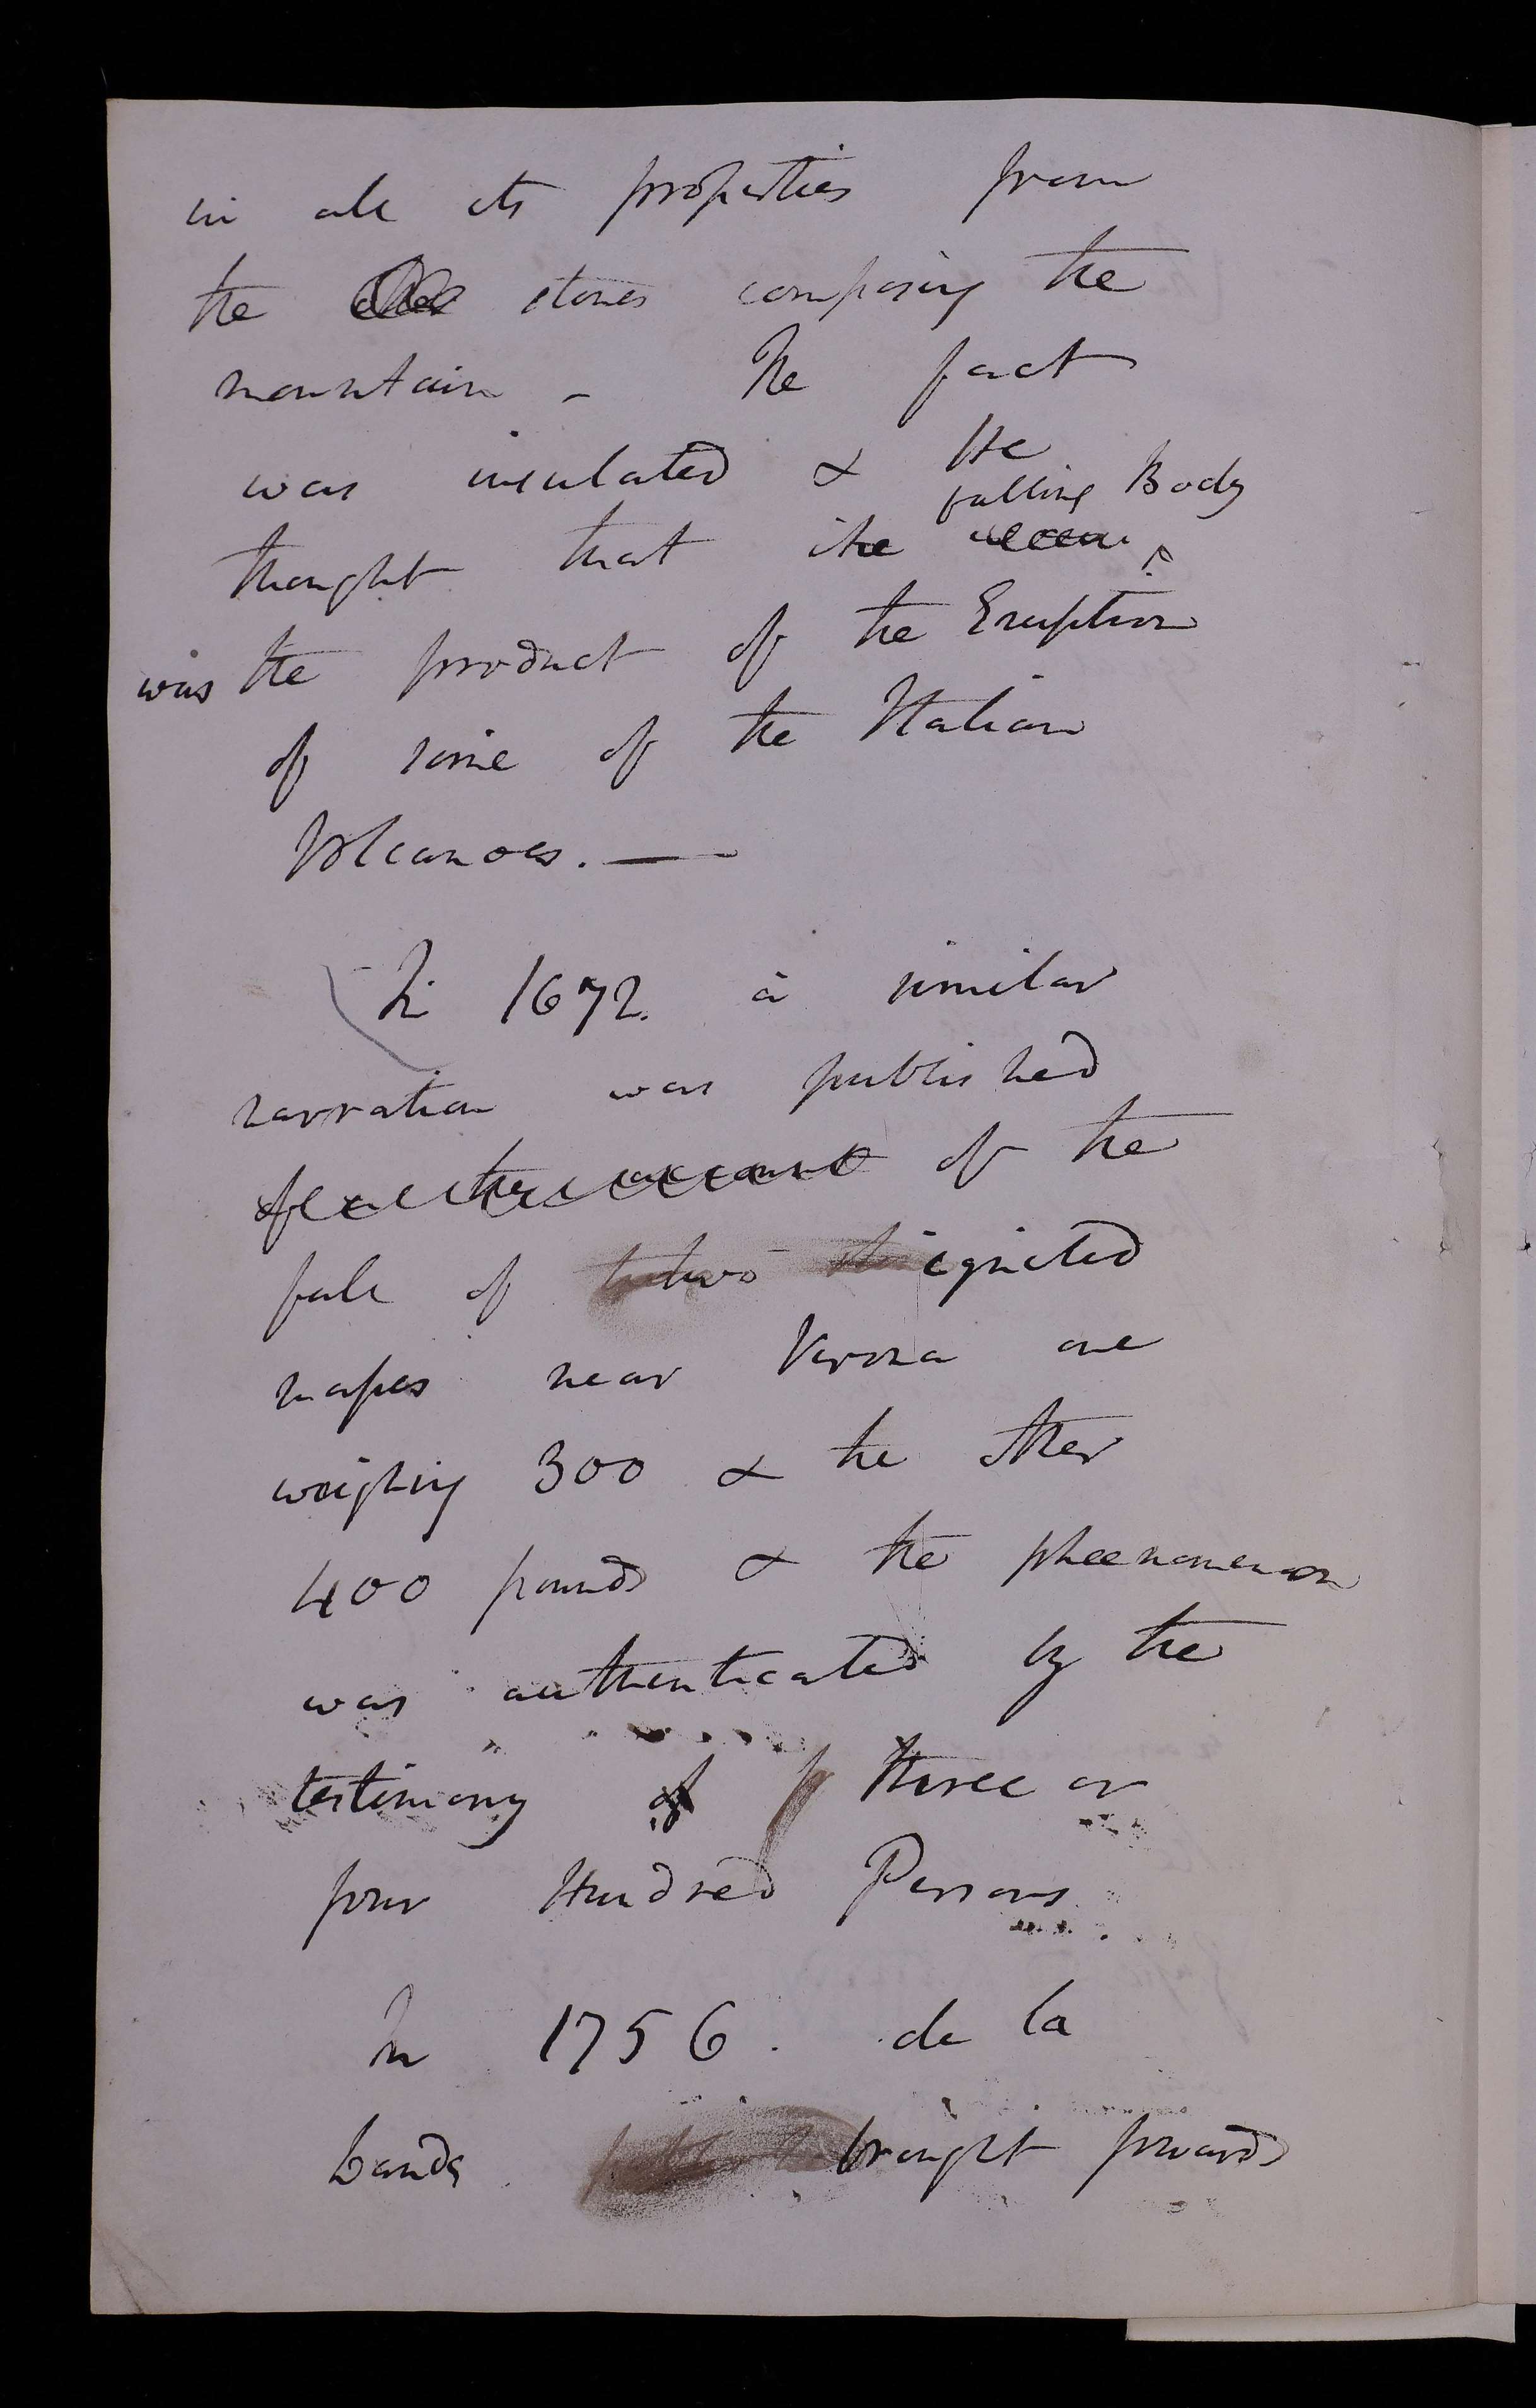 in all its properties from
the stones composing the
mountain - The fact
was insulated & He
falling Body
thought that the
was the product of the Eruption
of some of the Italian
Volcanoes. —
In 1672. a similar
narration was published
of the account of the
fall of two ignited
masses near Verona one
weighing 300 & the other
400 pounds & the phaenomenon
was authenticated by the
testimony of three or
four Hundred Persons
In 1756. de la
Lande brought forwards